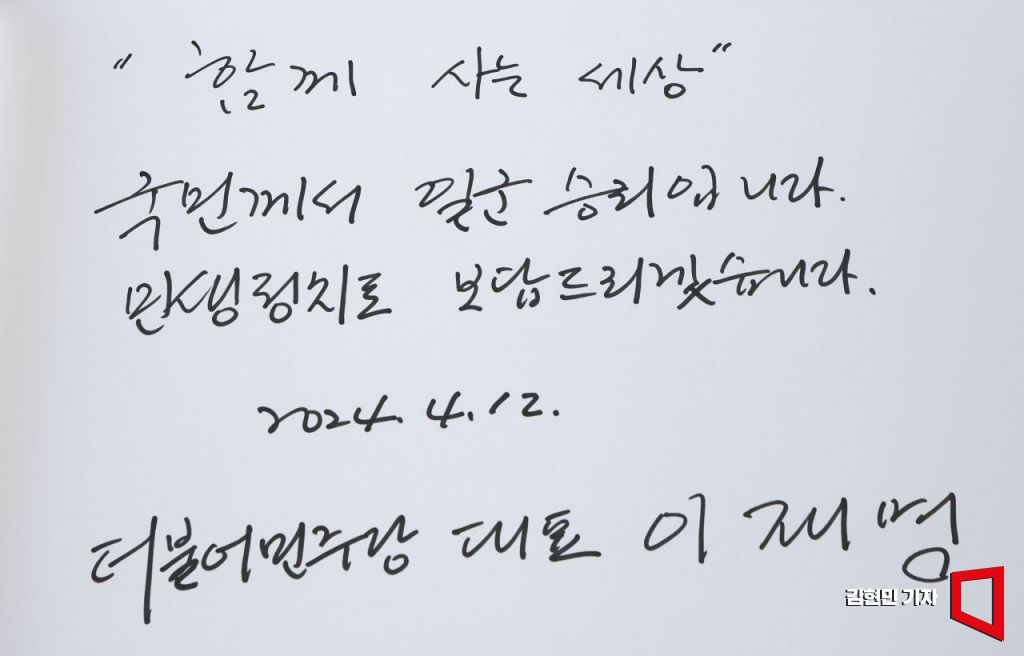 “함께 사는 세상”
국민께서 일군 승리입니다.
민생정치로 보답드리겠습니다.
2024. 4. 12.
더불어민주당 대표 이재명
김현민 기자